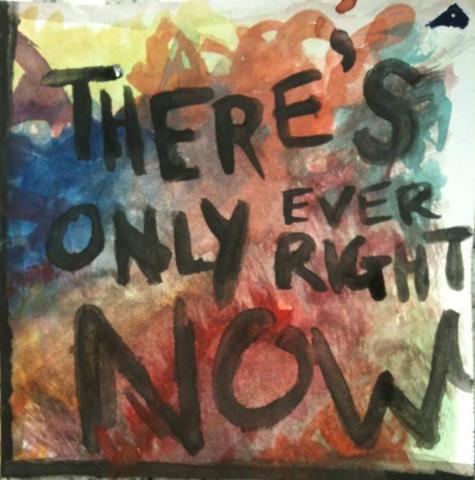 THERE'S
ONLY EVER
RIGHT
NOW